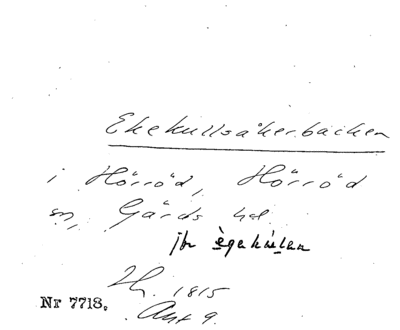 Ekekullsåkerbacken
i Hörröd, Hörröd
sn, Gärds hd.
jfr
1815
Akt 9.
Nr 7718.